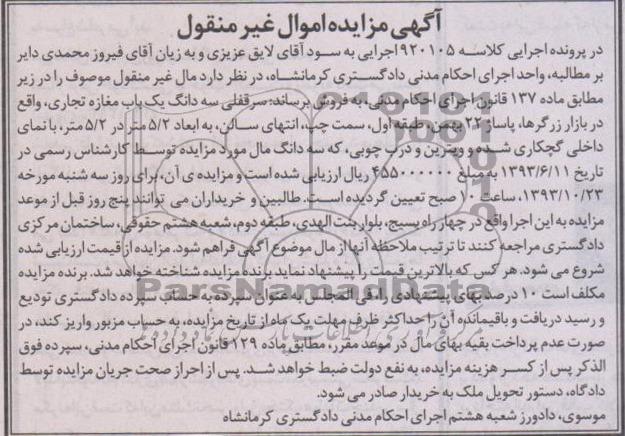 آگهی مزایده اموال غیر منقول
در پرونده اجرایی کلاسه ۹۲۰۱۰۵ اجرایی به سود آقای لایق عزیزی و به زیان آقای فیروز محمدی دایر
بر مطالبه، واحد اجرای احکام مدنی دادگستری کرمانشاه، در نظر دارد مال غیر منقول موصوف را در زیر
مطابق ماده ۱۳۷ قانون اجرای احکام مدنی، به فروش برساند: سرقفلی سه دانگ یک باب مغازه تجاری، واقع
در بازار زرگرها، پاساژ ۲۲ بهمن، طبقه اول، سمت چپ، انتهای سالن، به ابعاد ۵/۲ متر در ۵/۲ متر، با نمای
داخلی گچکاری شده و ویترین و درب چوبی، که سه دانگ مال مورد مزایده توسط کارشناس رسمی در
تاریخ ۱۳۹۳/۶/۱۱ به مبلغ ۴۵۵۰۰۰۰۰۰ ریال ارزیابی شده است و مزایده ی آن، برای روز سه شنبه مورخه
۱۳۹۳/۱۰/۲۳، ساعت ۱۰ صبح تعیین گردیده است. طالبین و خریداران می توانند پنج روز قبل از موعد
مزایده به این اجرا واقع در چهار راه بسیج، بلوار بنت الهدی، طبقه دوم، شعبه هشتم حقوقی، ساختمان مرکزی
دادگستری مراجعه کنند تا ترتیب ملاحظه آنها از مال موضوع آگهی فراهم شود. مزایده از قیمت ارزیابی شده
شروع می شود. هر کس که بالاترین قیمت را پیشنهاد نماید برنده مزایده شناخته خواهد شد. برنده مزایده
مکلف است ۱۰ درصد بهای پیشنهادی را، فی المجلس به عنوان سپرده به حساب سپرده دادگستری تودیع
و رسید دریافت و باقیمانده آن را حداکثر ظرف مهلت یک ماه از تاریخ مزایده، به حساب مزبور واریز کند، در
صورت عدم پرداخت بقیه بهای مال در موعد مقرر، مطابق ماده ۱۲۹ قانون اجرای احکام مدنی، سپرده فوق
الذکر پس از کسر هزینه مزایده، به نفع دولت ضبط خواهد شد. پس از احراز صحت جریان مزایده توسط
دادگاه، دستور تحویل ملک به خریدار صادر می شود.
موسوی، دادورز شعبه هشتم اجرای احکام مدنی دادگستری کرمانشاه
ParsNamadData